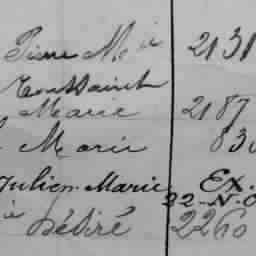 Pierre M. 2131
Toussaint
Marie 2187
Marie 830
Julien Marie Ex.
22-N-0
Désiré 2260